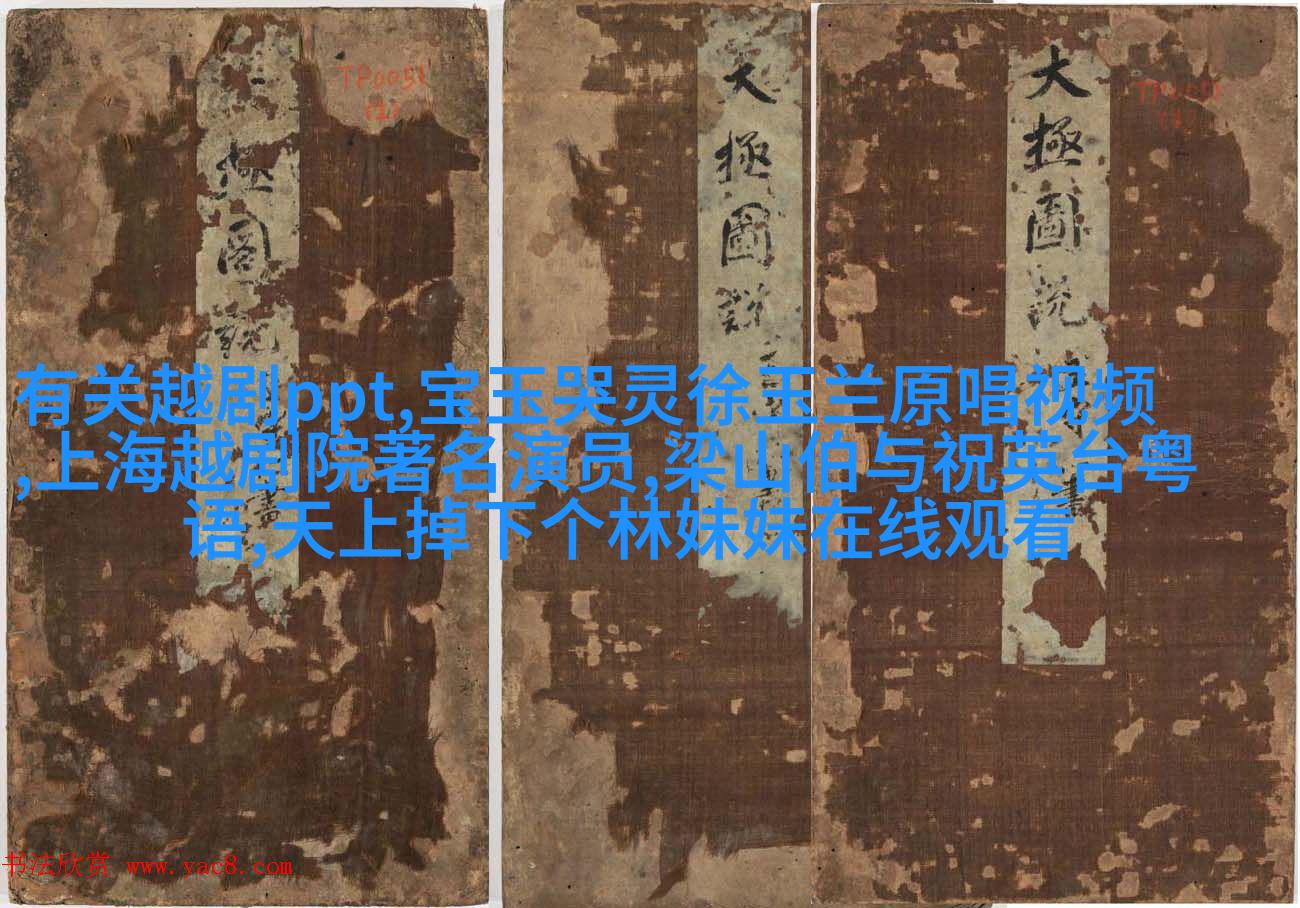 TP0051
(1)
極圖說
大極圖說
大極圖説
書
有关越剧ppt,宝玉哭灵徐玉兰原唱视频
,上海越剧院著名演员,梁山伯与祝英台粤
语,天上掉下个林妹妹在线观看
书法欣赏 www.yac8.com